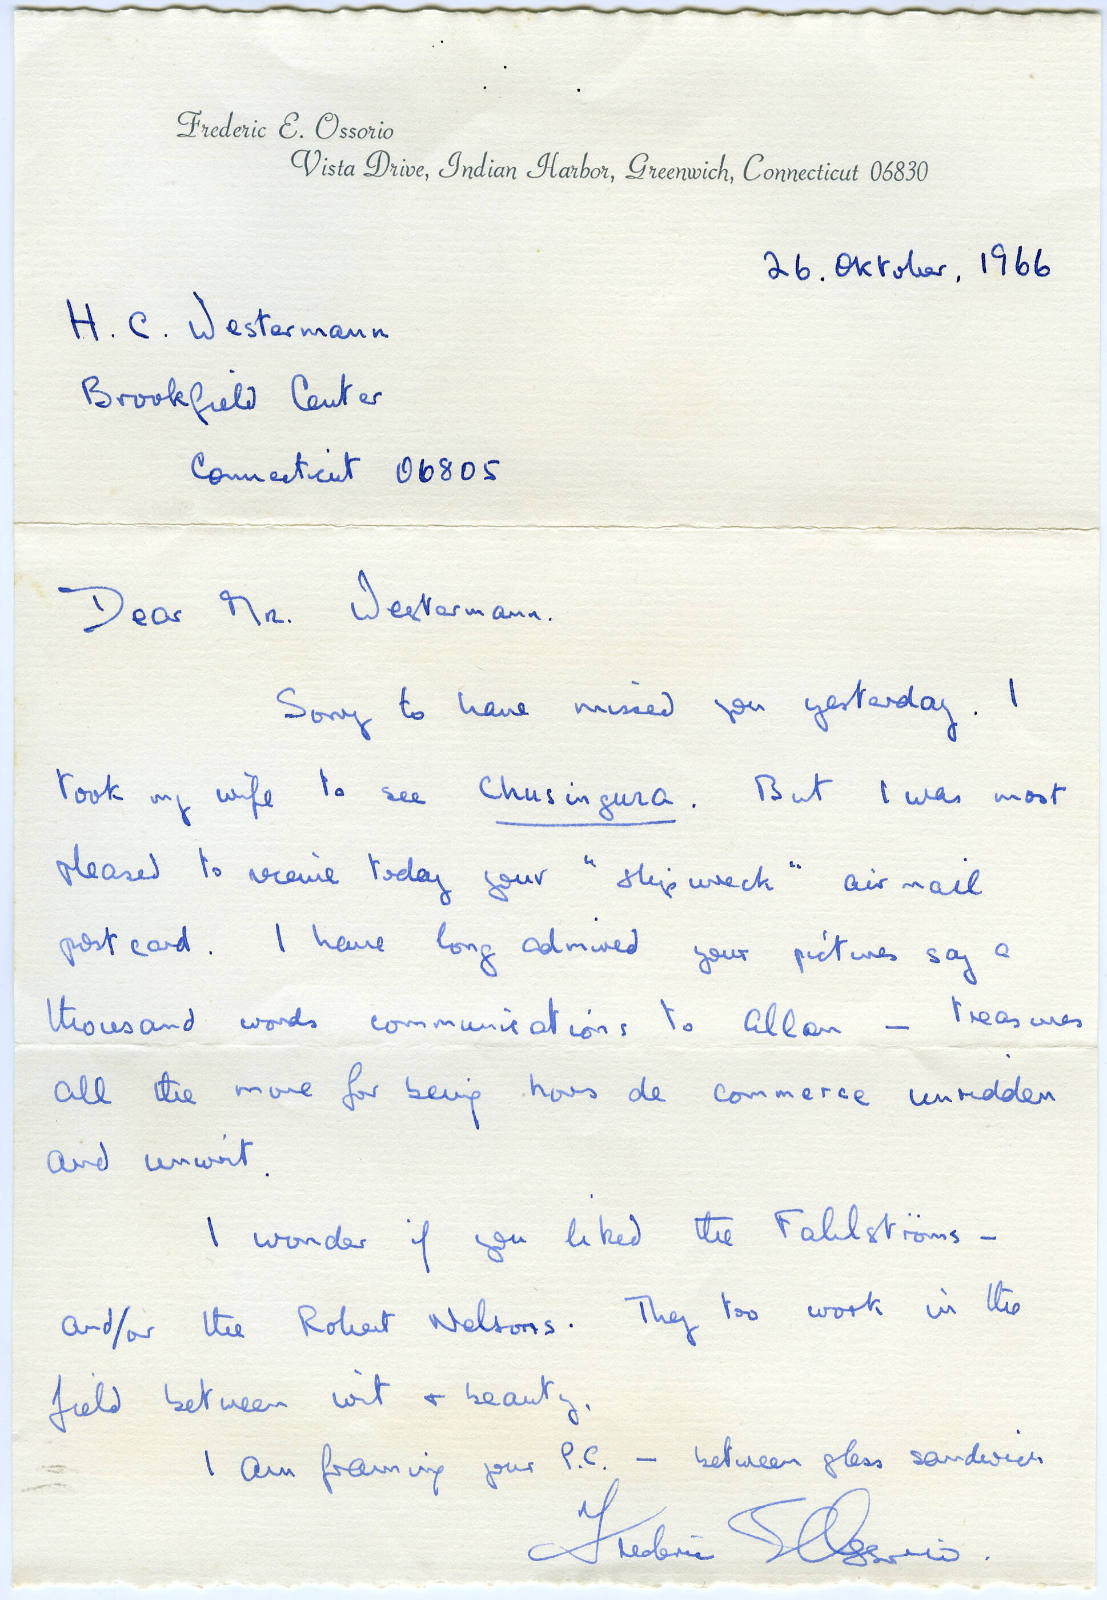 Frederic E. Ossorio
Vista Drive, Indian Harbor, Greenwich, Connecticut 06830
26. Oktober, 1966
H. C. Westermann
Brookfield Center
Connecticut 06805
Dear Mr. Westermann.
Sorry to have missed you yesterday. I
took my wife to see Chusingura. But I was most
pleased to receive today your "shipwreck" air mail
post card. I have long admired your pictures say a
thousand words communications to Allan — treasures
all the more for being hors de commerce unridden
and unwrit.
I wonder if you liked the Fahlströms —
and/or the Robert Nelsons. They too work in the
field between wit + beauty.
I am framing your P.C. — between glass sandwich
Frederic E Ossorio.